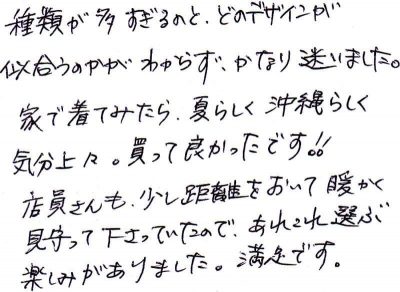 種類が多すぎるのと、どのデザインが
似合うのかがわからず、かなり迷いました。
家で着てみたら、夏らしく沖縄らしく
気分上々。買って良かったです!!
店員さんも、少し距離をおいて暖かく
見守って下さっていたので、あれこれ選ぶ
楽しみがありました。満足です。